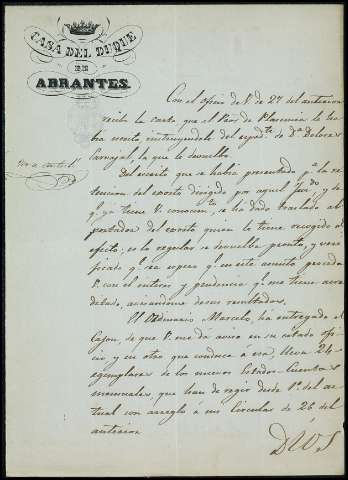 CASA DEL DUQUE
DE
ABRANTES.
Con el oficio de V. de 27 del anterior
recibí la carta que el Proc. de Plasencia le ha
bía escrito, instruyendole del espedte. de Da. Dolores
Carvajal, la que le devuelvo.
Del escrito que se había presentado pa. la re
tencion del exorto dirigido por aquel Juzdo. y de
q. ya tiene V. conocimto. se ha dado traslado al
portador del exorto quien lo tiene recogido al
efecto; es lo regular se devuelva pronto, y veri
ficado q. sea espero q. en este asunto proceda
V. con el interes y prudencia q. me tiene acre
ditado, avisandome de sus resultados.
El Ordinario Marcelo, ha entregado el
Cajon, de que V. me da aviso en su citado ofi
cio y en otro que conduce a esa, lleva 24
egemplares de los nuevos Estados-Cuentas
mensuales, que han de regir desde 1º del ac
tual con arreglo á mi Circular de 26 del
anterior